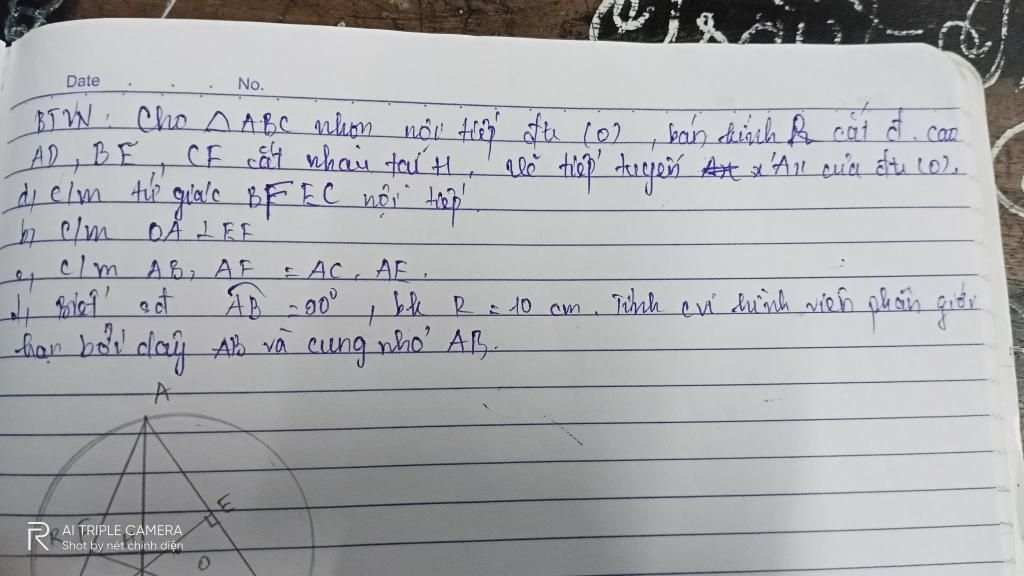 Date . . . . No.
BTVN: Cho △ABC nhọn nội tiếp đtr (O), bán kính R các đ. cao
AD, BE, CF cắt nhau tại H, vẽ tiếp tuyến x'Ax của đtr (O).
a, c/m tứ giác BFEC nội tiếp
b, c/m OA ⊥ EF
c, c/m AB. AF = AC. AE.
d, Biết sđ AB = 90°, bk R = 10 cm. Tính cvi hình viên phân giới
hạn bởi dây AB và cung nhỏ AB.
A
E
F
H
O
AI TRIPLE CAMERA
Shot by nét chinh diện